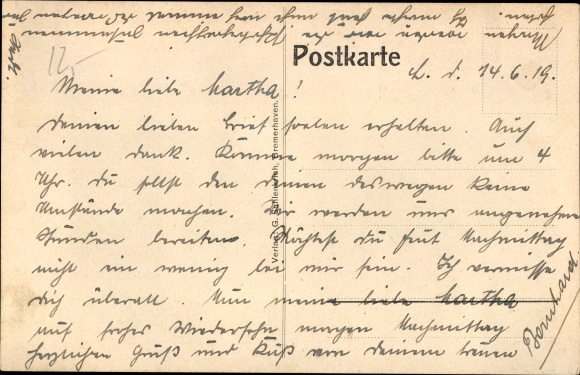 Postkarte
L. d. 14.6.19.
12,-
Meine liebe Martha!
deinen lieben Brief soeben erhalten. Auch
vielen dank. Komme morgen bitte um 4
Uhr. du sollst den deinen deswegen keine
Umstände machen. Wir werden uns angenehme
Stunden bereiten. Möchtest du heut Nachmittag
nicht ein wenig bei mir sein. Ich vermisse
dich überall. Nun meine liebe Martha
auf frohes Wiedersehn morgen Nachmittag
herzlichen Gruß und Kuß von deinem treuen
Bernhard.
Verlag: G. Bremerhaven.